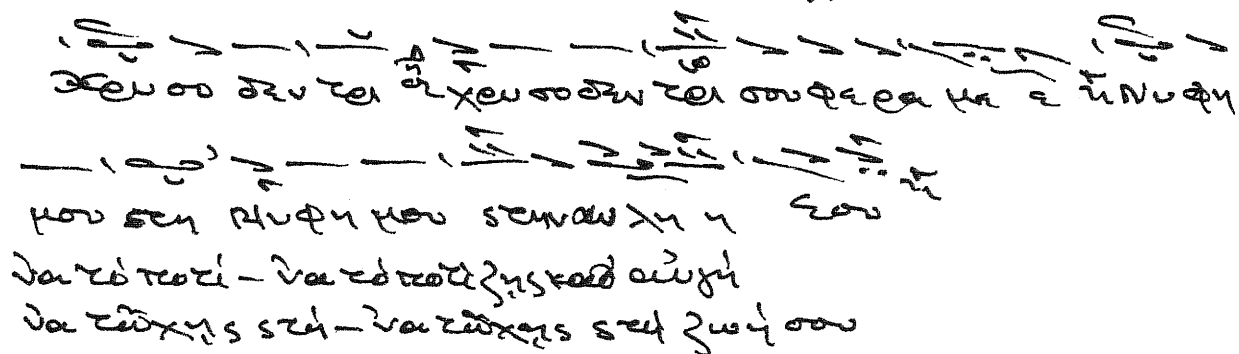 Χρυσο δεν τρι χρυσοδεν τρι σου φερα με ε Νυφη
μου στη Νυφη μου στην αυ λη η σου
Να τό ποτί – Να τό ποτίζῃς καθ' αὐγή
Να τῦχῃς στή – Να τῦχῃς στή ζωή σου